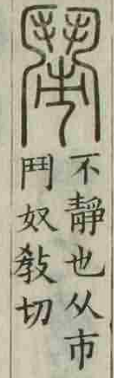 鬧
不靜也从市
鬥奴敎切